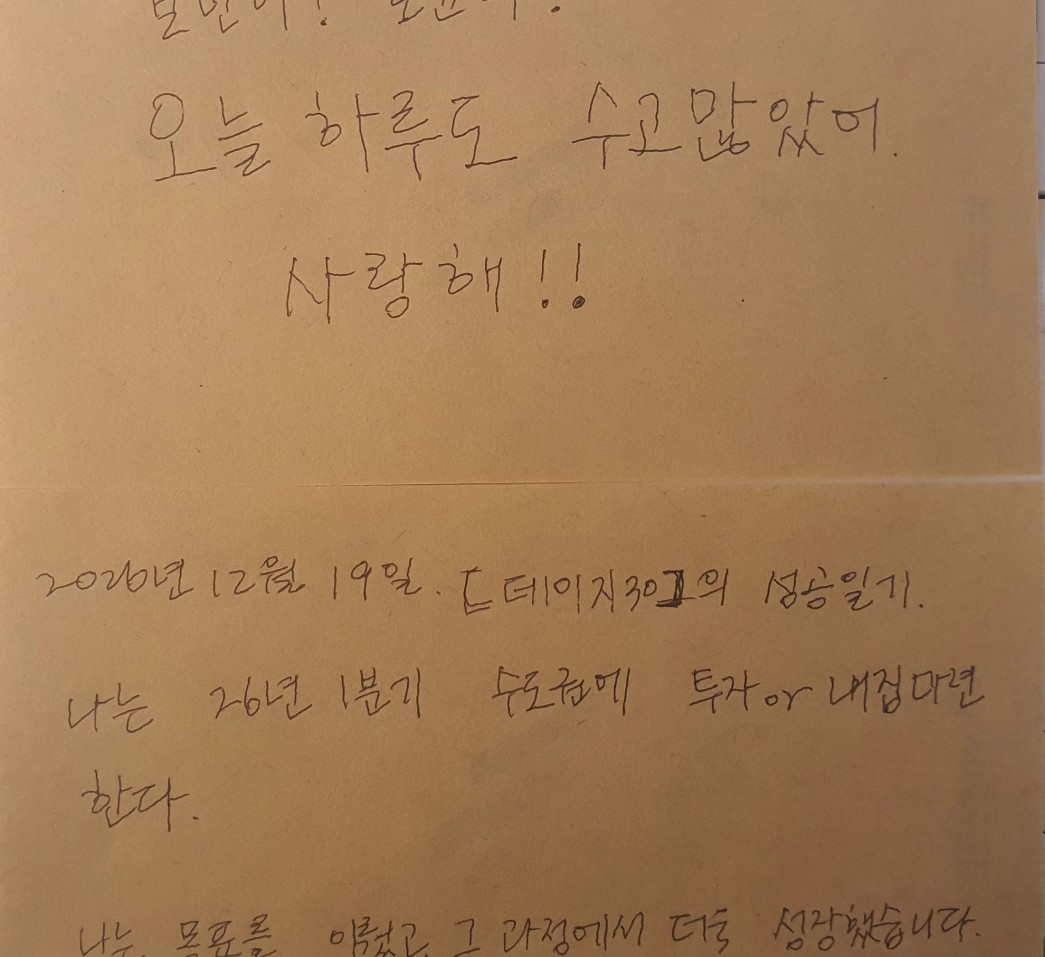 오늘 하루도 수고많았어.
사랑해!!
2026년 12월 19일. 데이지301의 성공일기.
나는 26년 1분기 수도권에 투자 or 내집마련
한다.
나는 목표를 이뤘고 그 과정에서 더욱 성장했습니다.